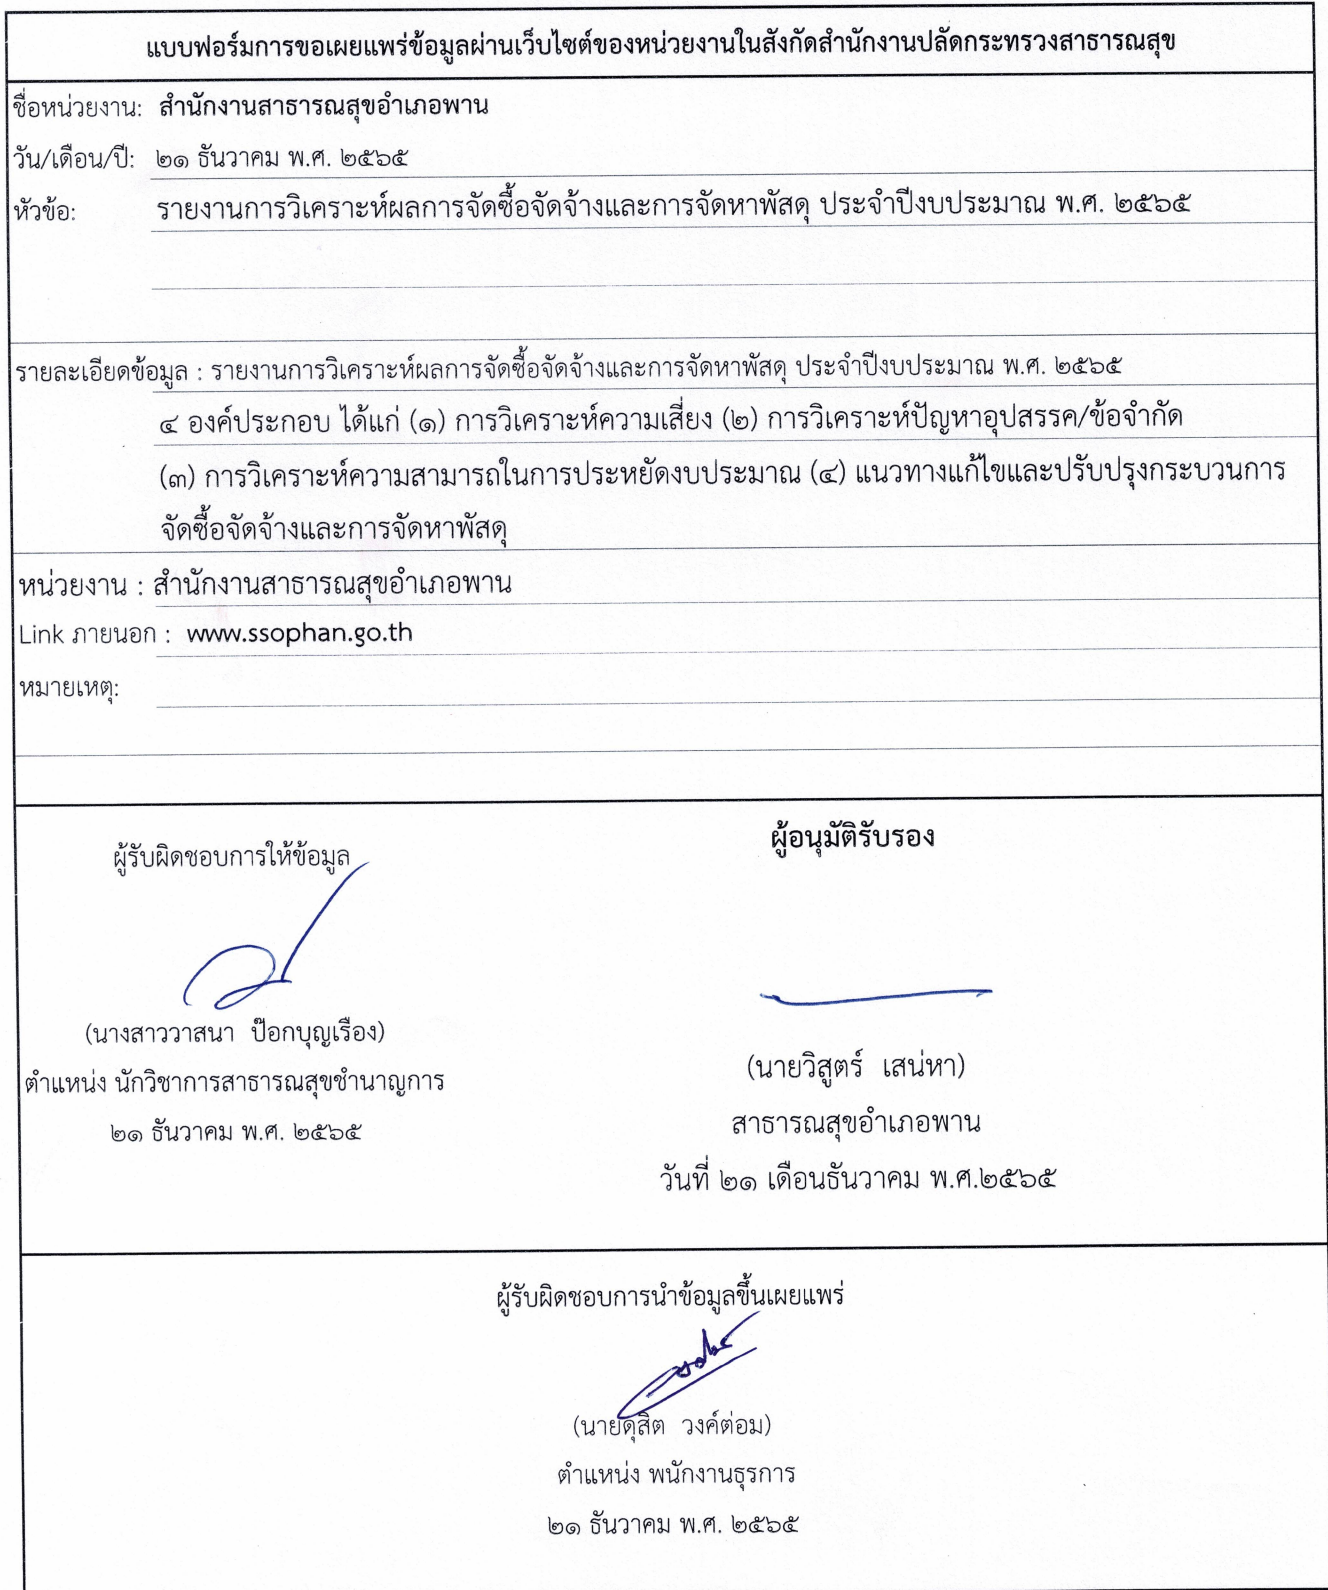 แบบฟอร์มการขอเผยแพร่ข้อมูลผ่านเว็บไซต์ของหน่วยงานในสังกัดสำนักงานปลัดกระทรวงสาธารณสุข
ชื่อหน่วยงาน: สำนักงานสาธารณสุขอำเภอพาน
วัน/เดือน/ปี: ๒๑ ธันวาคม พ.ศ. ๒๕๖๕
หัวข้อ: รายงานการวิเคราะห์ผลการจัดซื้อจัดจ้างและการจัดหาพัสดุ ประจำปีงบประมาณ พ.ศ. ๒๕๖๕
รายละเอียดข้อมูล : รายงานการวิเคราะห์ผลการจัดซื้อจัดจ้างและการจัดหาพัสดุ ประจำปีงบประมาณ พ.ศ. ๒๕๖๕
๔ องค์ประกอบ ได้แก่ (๑) การวิเคราะห์ความเสี่ยง (๒) การวิเคราะห์ปัญหาอุปสรรค/ข้อจำกัด
(๓) การวิเคราะห์ความสามารถในการประหยัดงบประมาณ (๔) แนวทางแก้ไขและปรับปรุงกระบวนการ
จัดซื้อจัดจ้างและการจัดหาพัสดุ
หน่วยงาน : สำนักงานสาธารณสุขอำเภอพาน
Link ภายนอก : www.ssophan.go.th
หมายเหตุ:
ผู้รับผิดชอบการให้ข้อมูล
(นางสาววาสนา ป๊อกบุญเรือง)
ตำแหน่ง นักวิชาการสาธารณสุขชำนาญการ
๒๑ ธันวาคม พ.ศ. ๒๕๖๕
ผู้อนุมัติรับรอง
(นายวิสูตร์ เสน่หา)
สาธารณสุขอำเภอพาน
วันที่ ๒๑ เดือนธันวาคม พ.ศ.๒๕๖๕
ผู้รับผิดชอบการนำข้อมูลขึ้นเผยแพร่
(นายดุสิต วงค์ต่อม)
ตำแหน่ง พนักงานธุรการ
๒๑ ธันวาคม พ.ศ. ๒๕๖๕